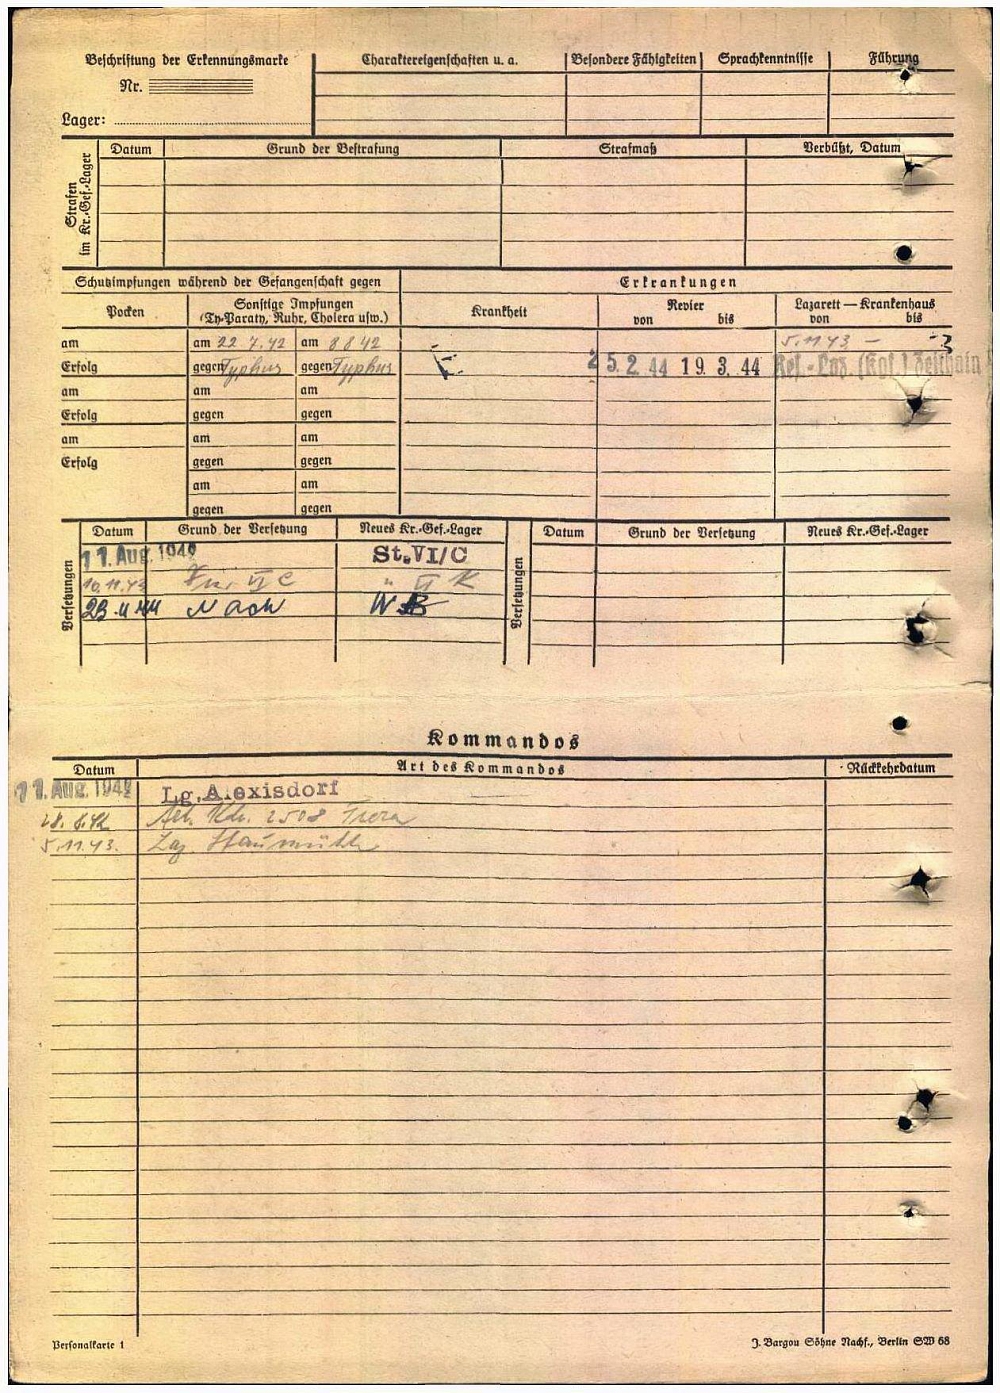 Beschriftung der Erkennungsmarke
Nr.
Lager:
Charaktereigenschaften u. a.
Besondere Fähigkeiten
Sprachkenntnisse
Führung
Strafen im Kr.-Gef.-Lager
Datum
Grund der Bestrafung
Strafmaß
Verbüßt, Datum
Schutzimpfungen während der Gefangenschaft gegen
Erkrankungen
Pocken
Sonstige Impfungen
(Ty-Paraty, Ruhr, Cholera usw.)
Krankheit
Revier
von bis
Lazarett — Krankenhaus
von bis
am am 22 7.42 am 8 8 42 5.11 43 –
Erfolg gegen Typhus gegen Typhus 25.2.44 19.3.44 Res.-Laz. (Kgf.) Zeithain
am am am
Erfolg gegen gegen
am am am
Erfolg gegen gegen
am am
gegen gegen
Versetzungen
Datum Grund der Versetzung Neues Kr.-Gef.-Lager
11. Aug. 1942 St.VI/C
10.11.43 VI C " VI K
23.11.44 Nach
Versetzungen
Datum Grund der Versetzung Neues Kr.-Gef.-Lager
Kommandos
Datum Art des Kommandos Rückkehrdatum
11. Aug. 1942 Lg. Alexisdorf
28.8.42 Arb. Kdo. 2508
5.11.43. Laz. Staumühle
Personalkarte 1
J. Bargou Söhne Nachf., Berlin SW 68